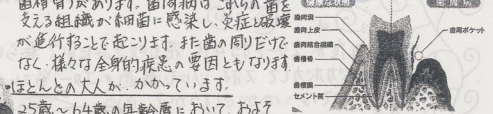 歯槽骨があります。歯周病は、これらの歯を
支える組織が細菌に感染し、炎症と破壊
が進行することで起こります。また歯の周りだけで
なく、様々な全身的疾患の要因ともなります
・ほとんどの大人が、かかっています。
25歳〜64歳の年齢層において、およそ
歯肉溝
歯肉上皮
歯肉結合組織
歯槽骨
歯根膜
セメント質
歯周ポケット